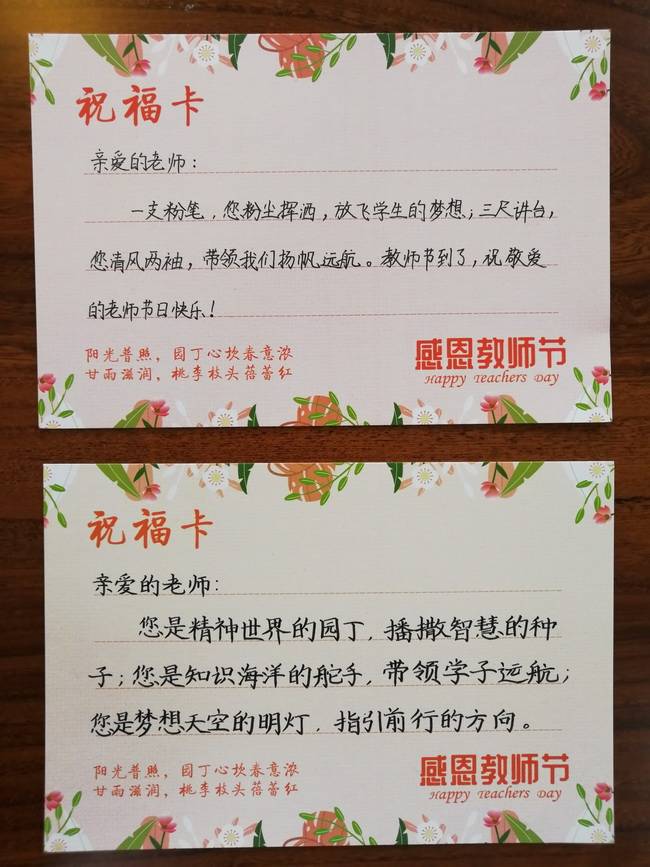 祝福卡
亲爱的老师:
一支粉笔，您粉尘挥洒，放飞学生的梦想；三尺讲台，
您清风两袖，带领我们扬帆远航。教师节到了，祝敬爱
的老师节日快乐！
阳光普照，园丁心坎春意浓
甘雨滋润，桃李枝头蓓蕾红
感恩教师节
Happy Teachers Day
祝福卡
亲爱的老师:
您是精神世界的园丁，播撒智慧的种
子；您是知识海洋的舵手，带领学子远航；
您是梦想天空的明灯，指引前行的方向。
阳光普照，园丁心坎春意浓
甘雨滋润，桃李枝头蓓蕾红
感恩教师节
Happy Teachers Day